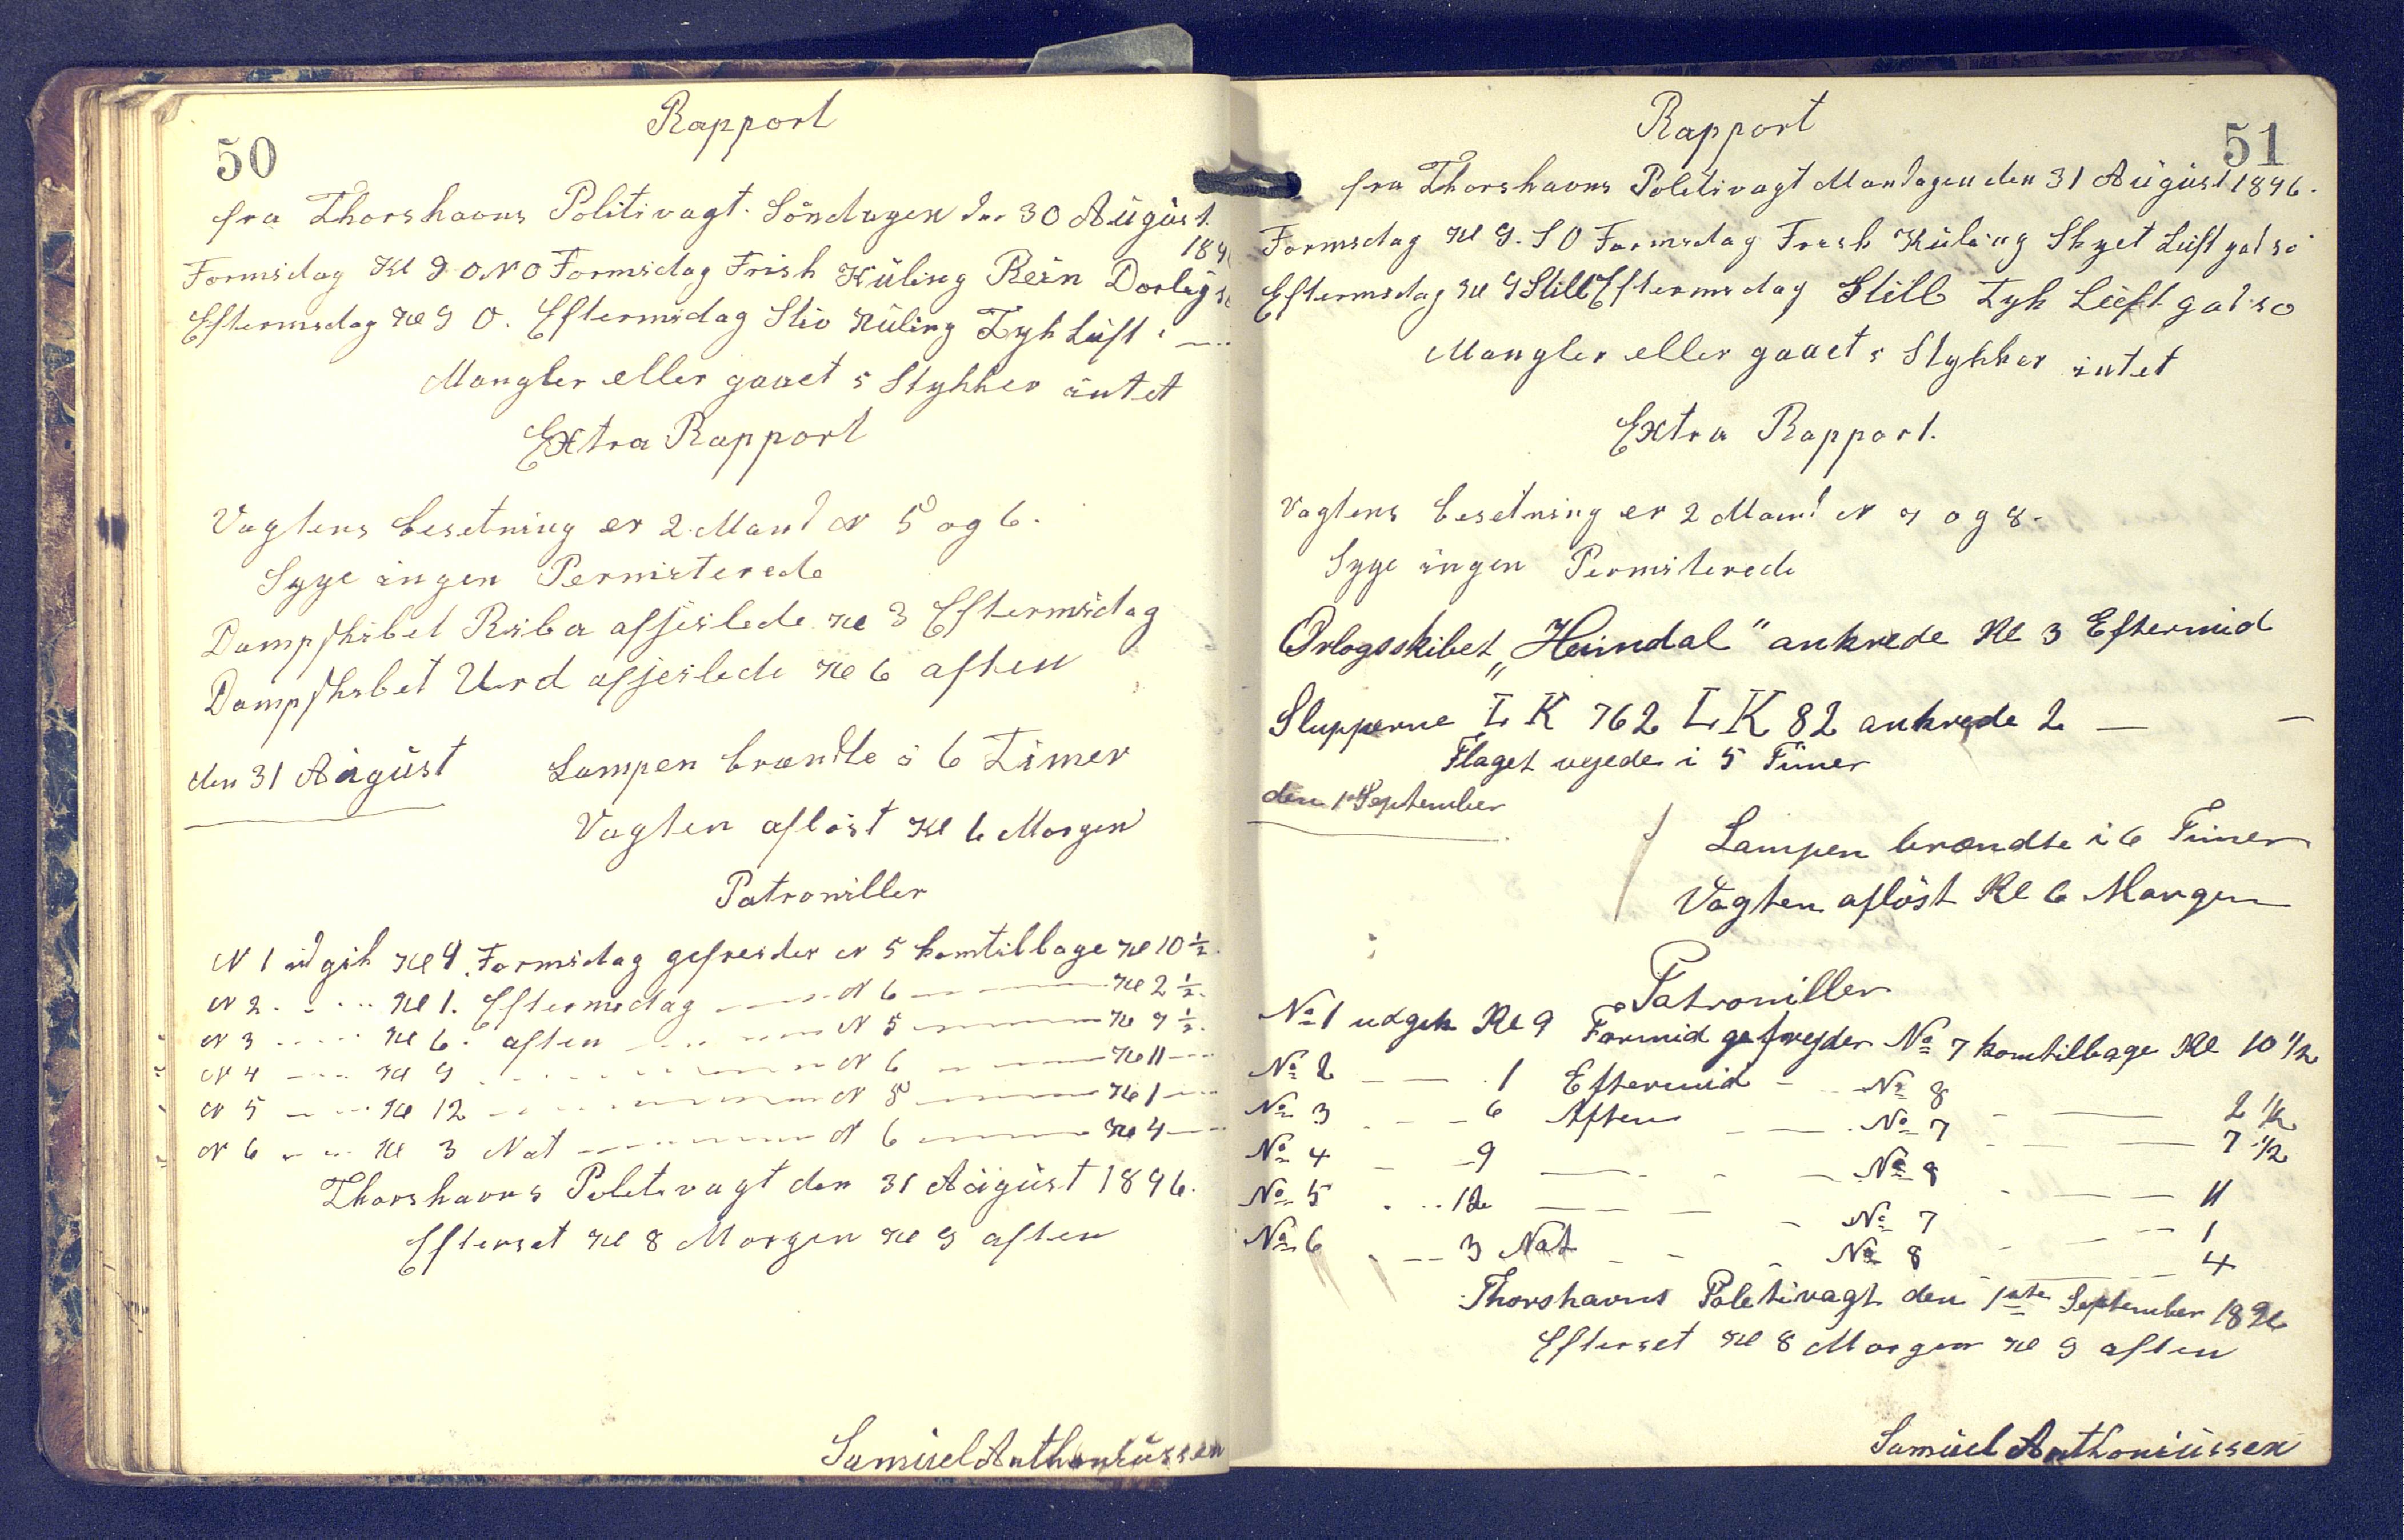 50
Rapport
fra Thorshavns Politivagt. Söndagen den 30 August.
189
Formidag Kl 9 ONO Formidag Frisk Küling Rein
Eftermidag Kl 9 O. Eftermidag Stiv Küling Tyk Lüft
Mangler eller gaaet i Stykker intet
Extra Rapport
Vagtens besetning er 2 Mand N 5 og 6.
Syge ingen Permiterede
Dampskibet afseilede Kl 3 Eftermidag
Dampskibet Urd afseilede Kl 6 aften
den 31 August Lampen brændte i 6 Timer
Vagten aflöst Kl 6 Morgen
Patroniller
N 1 udgik Kl 9 Formidag gefreider N 5 komtilbage Kl 10 ½
N 2 Kl 1. Eftermidag N 6 Kl 2 ½
N 3 Kl 6. aften N 5 Kl 7 ½
N 4 Kl 9 N 6 Kl 11
N 5 Kl 12 N 5 Kl 1
N 6 Kl 3 Nat N 6 Kl 4
Thorshavns Politivagt den 31 August 1896.
Efterset Kl 8 Morgen Kl 9 aften
Samuel Anthoniussen
51
Rapport
fra Thorshavns Politivagt Mandagen den 31 August 1896.
Formidag Kl 9. SO Formidag Frisk Küling Skyet Lüft
Eftermidag Kl 9 Still Eftermidag Still Tyk Lüft
Mangler eller gaaet i Stykker intet
Extra Rapport.
Vagtens besetning er 2 Mand N 7 og 8.
Syge ingen Permiterede
Orlogsskibet „Heimdal" ankrede Kl 3 Eftermid
Slupperne LK 762 LK 82 ankrede 2 — —
Flaget vejede i 5 Timer
den 1ste September
Lampen brændte i 6 Timer
Vagten aflöst Kl 6 Morgen
Patroniller
No 1 udgik Kl 9 Formid gefrejder No 7 komtilbage Kl 10 1/2
No 2 1 Eftermid No 8 2 1/2
No 3 6 Aften No 7 7 1/2
No 4 9 No 8 11
No 5 12 No 7 1
No 6 3 Nat No 8 4
Thorshavns Politivagt den 1ste September 1896
Efterset Kl 8 Morgen Kl 9 aften
Samuel Anthoniussen